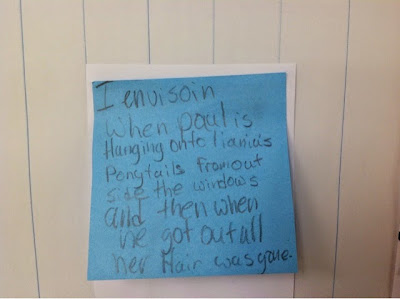 I envisoin
when paul is
Hanging onto liania's
Ponytails from out
side the windows
and then when
he got out all
her Hair was gone.